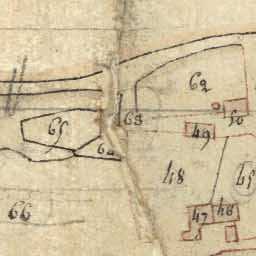 62
65
63
50
49
64
48
45
66
47
46